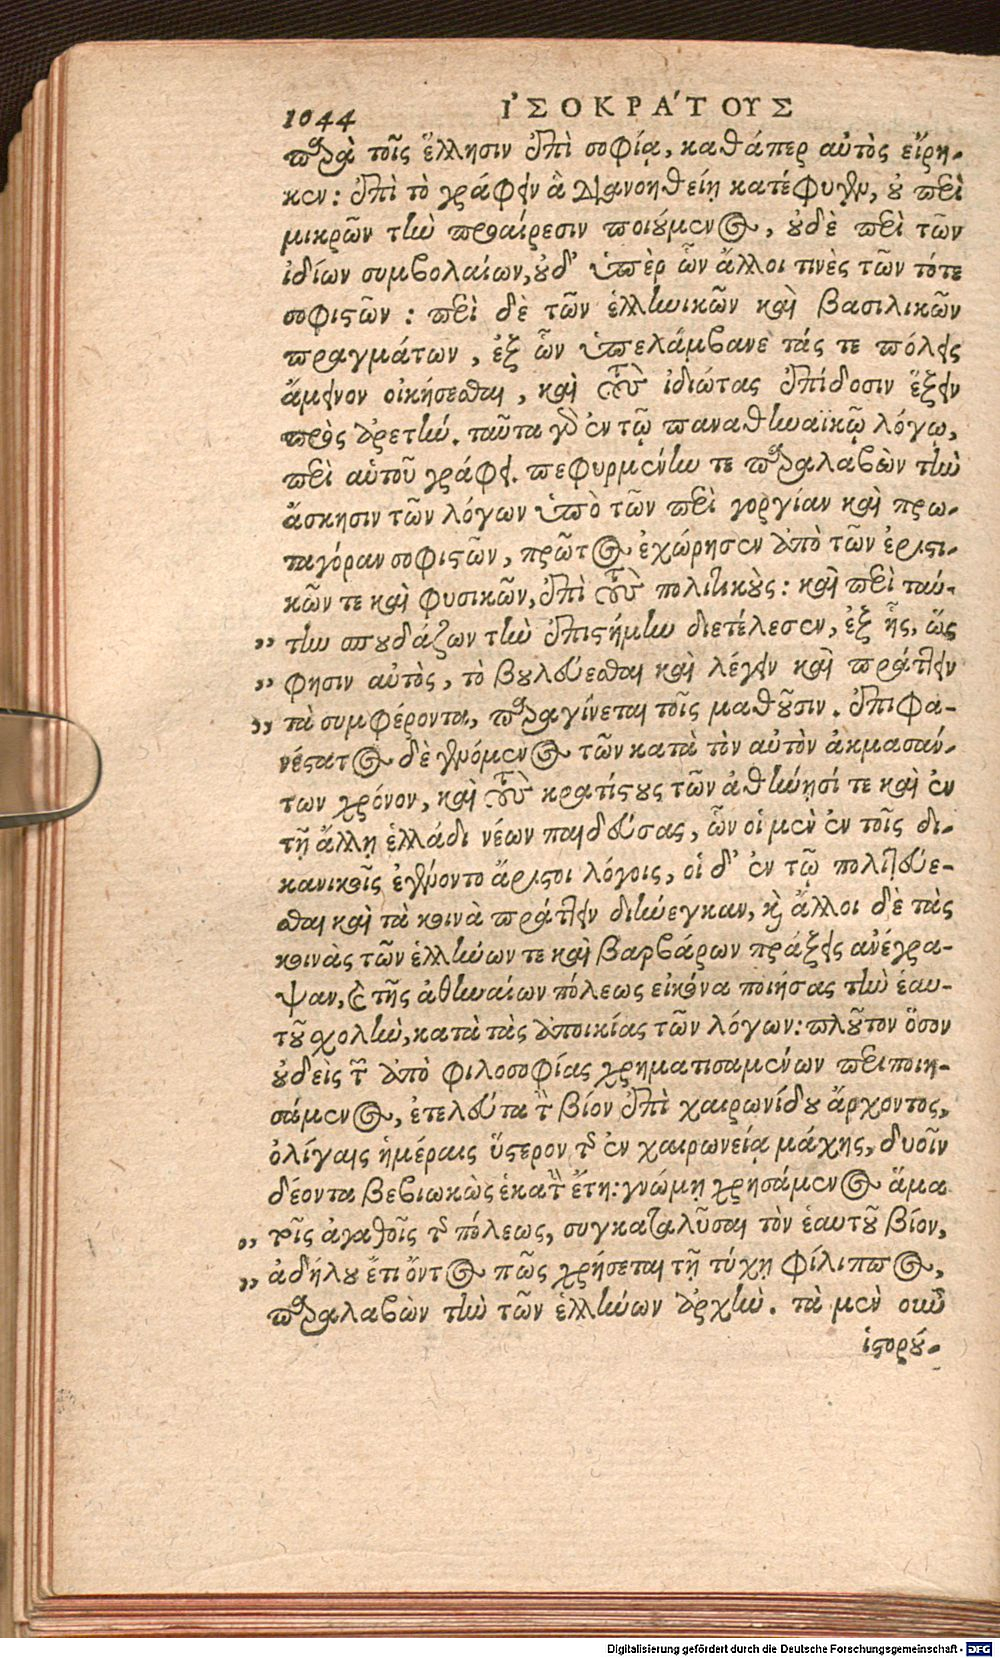 1044 ἸΣΟΚΡΆΤΟΥΣ
παρὰ τοῖς ἕλλησιν ἐπὶ σοφίᾳ, καθάπερ αὐτὸς εἴρη-
κεν: ἐπὶ τὸ γράφειν ἃ διανοηθείη κατέφυγεν, οὐ περὶ
μικρῶν τὴν προαίρεσιν ποιούμενος, οὐδὲ περὶ τῶν
ἰδίων συμβολαίων, οὐδ' ὑπὲρ ὧν ἄλλοι τινὲς τῶν τότε
σοφιστῶν: περὶ δὲ τῶν ἑλληνικῶν καὶ βασιλικῶν
πραγμάτων, ἐξ ὧν ὑπελάμβανε τάς τε πόλεις
ἄμεινον οἰκήσεσθαι, καὶ τοὺς ἰδιώτας ἐπίδοσιν ἕξειν
πρὸς ἀρετήν. ταῦτα γὰρ ἐν τῷ παναθηναϊκῷ λόγῳ,
περὶ αὑτοῦ γράφει. πεφυρμένην τε παραλαβὼν τὴν
ἄσκησιν τῶν λόγων ὑπὸ τῶν περὶ γοργίαν καὶ πρω-
ταγόραν σοφιστῶν, πρῶτος ἐχώρησεν ἀπὸ τῶν ἐριστι-
κῶν τε καὶ φυσικῶν, ἐπὶ τοὺς πολιτικούς: καὶ περὶ ταύ-
„ την σπουδάζων τὴν ἐπιστήμην διετέλεσεν, ἐξ ἧς, ὥς
„ φησιν αὐτὸς, τὸ βουλεύεσθαι καὶ λέγειν καὶ πράττειν
„ τὰ συμφέροντα, παραγίνεται τοῖς μαθοῦσιν. ἐπιφα-
νέστατος δὲ γενόμενος τῶν κατὰ τὸν αὐτὸν ἀκμασάν-
των χρόνον, καὶ τοὺς κρατίστους τῶν ἀθήνησί τε καὶ ἐν
τῇ ἄλλῃ ἑλλάδι νέων παιδεύσας, ὧν οἱ μὲν ἐν τοῖς δι-
κανικοῖς ἐγένοντο ἄριστοι λόγοις, οἱ δ' ἐν τῷ πολιτεύε-
σθαι καὶ τὰ κοινὰ πράττειν διήνεγκαν, καὶ ἄλλοι δὲ τὰς
κοινὰς τῶν ἑλλήνων τε καὶ βαρβάρων πράξεις ἀνέγρα-
ψαν, καὶ τῆς ἀθηναίων πόλεως εἰκόνα ποιήσας τὴν ἑαυ-
τοῦ σχολὴν, κατὰ τὰς ἀποικίας τῶν λόγων: πλοῦτον ὅσον
οὐδεὶς τῶν ἀπὸ φιλοσοφίας χρηματισαμένων περιποιη-
σάμενος, ἐτελεύτα τὸν βίον ἐπὶ χαιρωνίδου ἄρχοντος,
ὀλίγαις ἡμέραις ὕστερον τῆς ἐν χαιρωνείᾳ μάχης, δυοῖν
δέοντα βεβιωκὼς ἑκατὸν ἔτη: γνώμῃ χρησάμενος ἅμα
„ τοῖς ἀγαθοῖς τῆς πόλεως, συγκαταλῦσαι τὸν ἑαυτοῦ βίον,
„ ἀδήλου ἔτι ὄντος πῶς χρήσεται τῇ τύχῃ φίλιππος,
παραλαβὼν τὴν τῶν ἑλλήνων ἀρχήν. τὰ μὲν οὖν
ἱστορού-
Digitalisierung gefördert durch die Deutsche Forschungsgemeinschaft - DFG